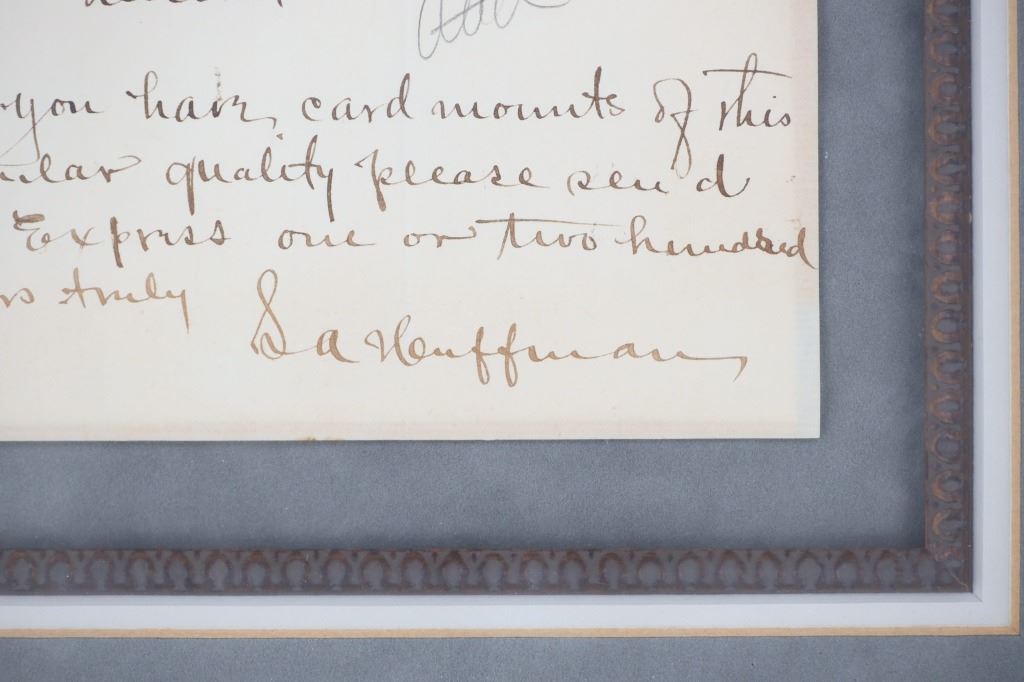 you have card mounts of this
ular quality please send
Express one or two hundred
rs truly
La Huffman